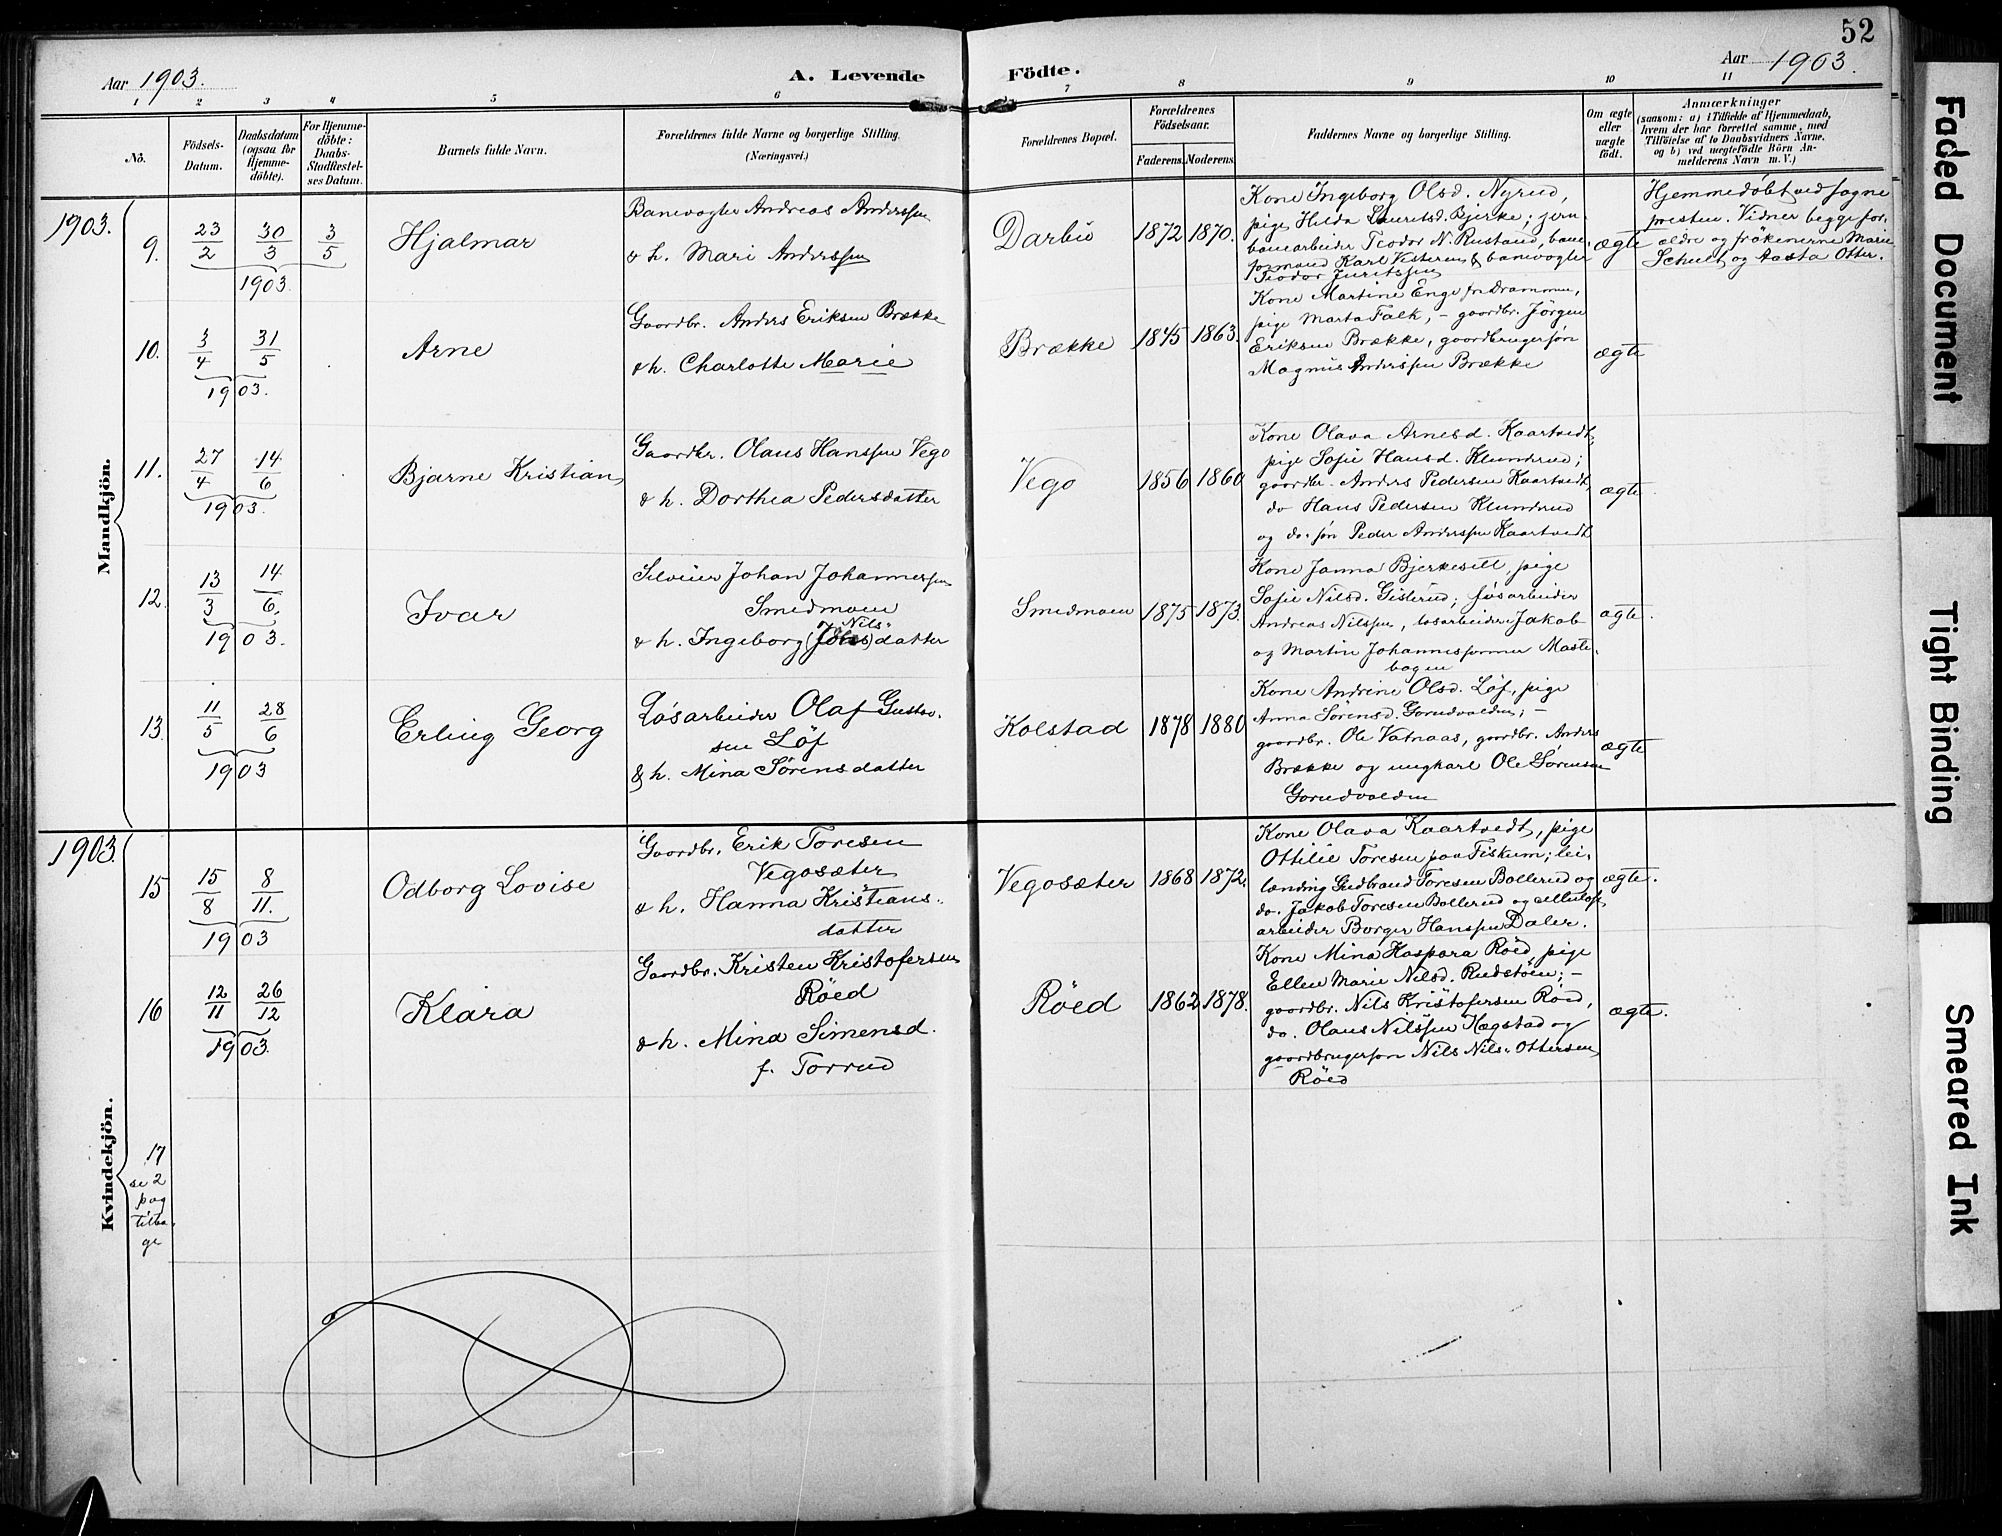 52
Aar 1903.
A. Levende
Födte.
Aar 1903.
1 2 3 4 5 6 7 8 9 10 11
No.
Födsels-
Datum.
Daabsdatum
(ogsaa for
Hjemme-
döbte).
For Hjemme-
döbte:
Daabs-
Stadfæstel-
ses Datum.
Barnets fulde Navn.
Forældrenes fulde Navne og borgerlige Stilling.
(Næringsvei.)
Forældrenes Bopæl.
Forældrenes
Födselsaar.
Faderens. Moderens.
Faddernes Navne og borgerlige Stilling.
Om ægte
eller
uægte
födt.
Anmærkninger
(saasom: a) i Tilfælde af Hjemmedaab,
hvem der har forrettet samme, med
Tilföielse af to Daabsvidners Navne.
og b) ved uægtefödte Börn An-
melderens Navn m. V.)
Mandkjön.
1903.
9.
23/2 30/3 3/5
1903.
Hjalmar
Banevogter Andreas Anderssen
& h. Mari Anderssen
Darbu
1872 1870.
Kone Ingeborg Olsd. Nyrud,
pige Hilda Lauritsd. Bjerke; jern-
banearbeider Teodor N. Rustand, bane-
formand Karl Vesteren & banevogter
Teodor Juritssen
ægte
Hjemmedøbt ved sogne
presten. Vidner begge for-
ældre og frøkenerne Marie
Schult og Aasta Otter.
10.
3/4 31/5
1903.
Arne
Gaardbr. Anders Eriksen Brække
& h. Charlotte Marie
Brække
1845 1863.
Kone Martine Enge fr Drammen,
pige Marta Falk, - gaardbr. Jörgen
Eriksen Brække, gaardbrugersøn
Magnus Anderssen Brække
ægte
11.
27/4 14/6
1903.
Bjarne Kristian
Gaardbr. Olaus Hanssen Vego
& h. Dorthea Pedersdatter
Vego
1856 1860
Kone Olava Arnesd. Kaartvedt,
pige Sofie Hansd. Klunderud;
gaardbr. Anders Pedersen Kaartvedt,
do Hans Pedersen Klundrud
og do. søn Peder Anderssen Kaartvedt
ægte.
12.
13/3 14/6.
1903.
Ivar
Johan Johannessen
Smedmoen
Nils-
& h. Ingeborg datter
Smedmoen
1875 1873.
Kone Janna Bjerkesett, pige
Sofie Nilsd. Gisterud; løsarbeider
Andreas Nilssen, løsarbeider Jakob
og Martin Johannessønner Maste-
bogen
ægte.
13.
11/5 28/6
1903
Erling Georg
Løsarbeider Olaf Gustav-
sen Løf
& h. Mina Sørensdatter
Kolstad
1878 1880
Kone Andrine Olsd. Løf, pige
Anna Sørensd. Gorudvalden; -
gaardbr. Ole Vatnaas, gaardbr. Anders
Brække og ungkarl Ole Sørensen
Gorudvalden
ægte
Kvindekjön.
1903.
15
15/8 8/11.
1903
Odborg Lovise
Gaardbr. Erik Toresen
Vegosæter
& h. Hanna Kristians-
datter
Vegosæter
1868 1872.
Kone Olava Kaartvedt, pige
Ottilie Toresen paa Fiskum; lei-
lænding Gudbrand Toresen Bollerud og
do. Jakob Toresen Bollerud og cellulose-
arbeider Borger Hanssen Daler.
ægte.
16
12/11 26/12
1903.
Klara
Gaardbr. Kristen Kristofersen
Røed
& h. Mina Simensd.
f. Torrud
Røed
1862 1878.
Kone Mina Kaspara Røed, pige
Ellen Marie Nilsd. Rudstöen; -
gaardbr. Nils Kristofersen Røed,
do. Olaus Nilssen Hægstad og
gaardbrugersøn Nils Nils-Ottersen
Røed
ægte.
17
se 2
pag
tilba-
ge
Faded Document
Tight Binding
Smeared Ink